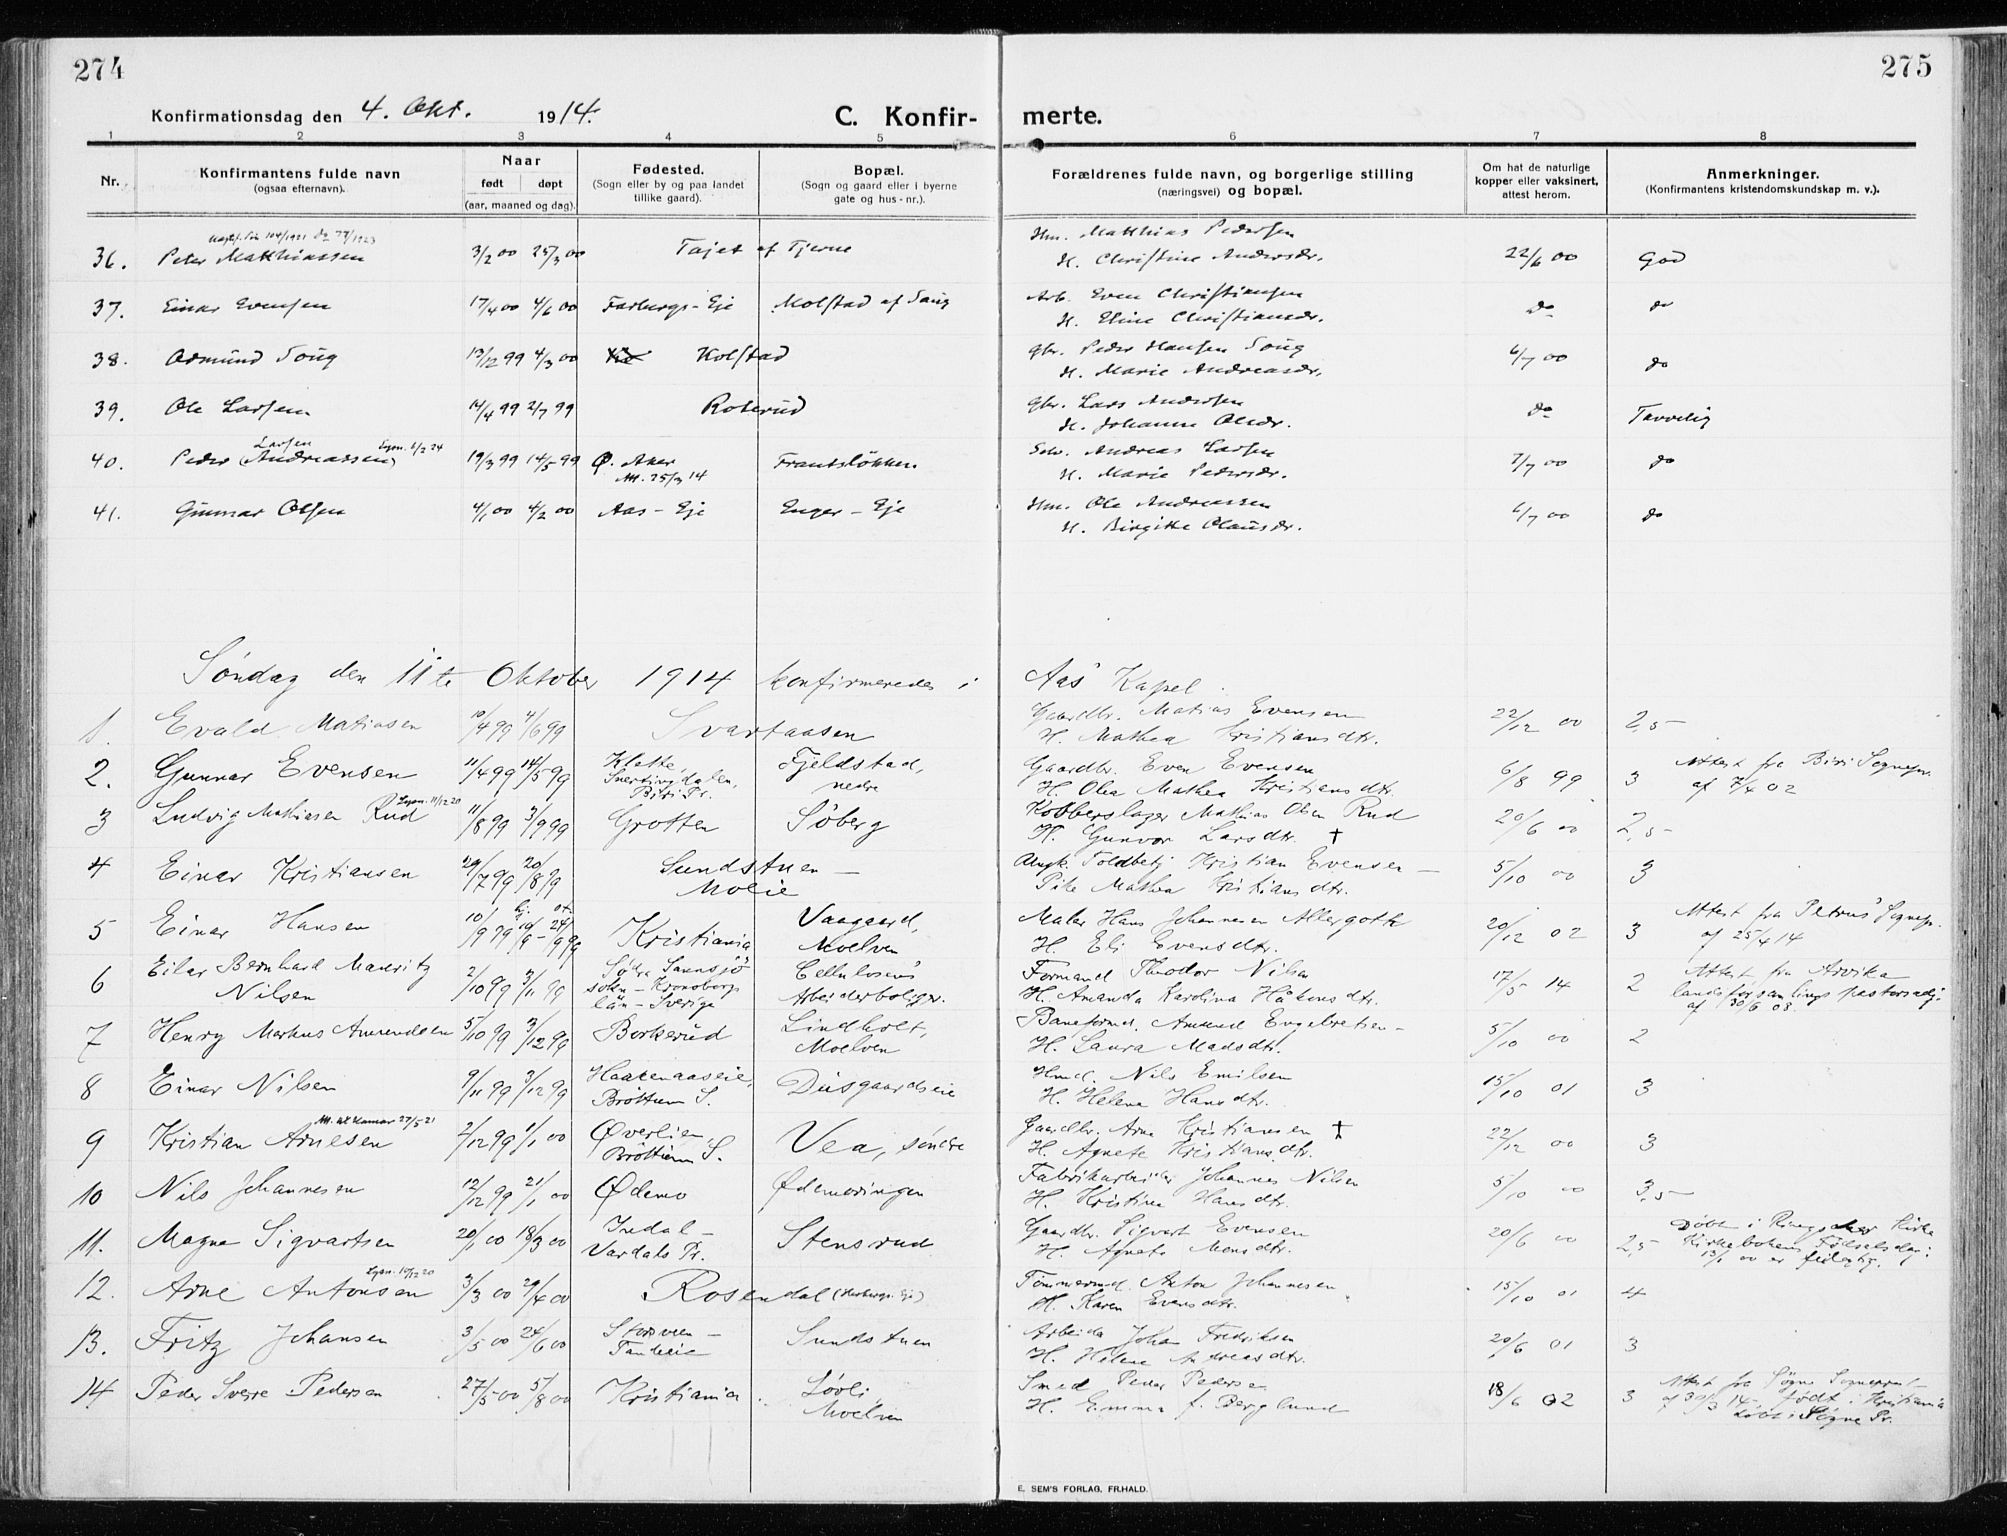 274
275
Konfirmationsdag den 4. Okt. 1914. C. Konfir- merte.
1 2 3 4 5 6 7 8
Nr.
Konfirmantens fulde navn
(ogsaa efternavn).
Naar
født døpt
(aar, maaned og dag).
Fødested.
(Sogn eller by og paa landet
tillike gaard).
Bopæl.
(Sogn og gaard eller i byerne
gate og hus-nr.).
Forældrenes fulde navn, og borgerlige stilling
(næringsvei) og bopæl.
Om hat de naturlige
kopper eller vaksinert,
attest herom.
Anmerkninger.
(Konfirmantens kristendomskundskap m. v.).
104/1921 do 77/1923
36. Peter Matthiassen 3/2 00 25/3 00 Tajet af Tjerne Hm. Matthias Pedersen
H. Christine Andersdr. 22/6 00 God
37. Einar Evensen 17/4 00 4/6 00 Farbergs-Eje Molstad af Saug Arb. Even Christiansen
H. Eline Christiansdr. do do
38. Asmund Soug 13/12 99 4/3 00 Kolstad Gbr. Peder Hansen Soug
H. Marie Andreasdr. 6/7 00 do
39. Ole Larsen 14/4 99 2/7 99 Roterud Gbr. Lars Andersen
H. Johanne Olsdr. do Tarvelig
40. Peder (Andreassen) Larsen Lysn. 6/2 24 19/3 99 14/5 99 Ø. Aker
Att. 25/3 14 Frantsløkken Selv. Andreas Larsen
H. Marie Pedersdr. 7/7 00 do
41. Gunnar Olsen 4/1 00 4/2 00 Aas-Eje Enger-Eje Hm. Ole Andreassen
H. Birgitte Olausdr. 6/7 00 do
Søndag den 11te Oktober 1914 konfirmeredes i Aas' Kapel.
1. Evald Matiasen 10/4 99 4/6 99 Svartaasen Gaardbr. Matias Evensen
H. Mathea Kristiansdtr. 22/12 00 2,5
2. Gunnar Evensen 11/4 99 14/5 99 Klette,
Snertingdalen,
Biri Pr. Fjeldstad,
nedre Gaardbr. Even Evensen
H. Olea Mathea Kristiansdtr. 6/8 99 3 Attest fra Biri Sognepr.
af 7/4 02
3 Ludvig Mathiasen Rud Lysn. 11/12 20 11/8 99 3/9 99 Grotten Søberg Kobberslager Mathias Olsen Rud
H. Gunvor Larsdtr. † 20/6 00 2,5
4 Einar Kristiansen 29/7 99 20/8 99 Sundstuen –
Moeie Ungk. Toldbetj. Kristian Evensen –
Pike Mathea Kristiansdtr. 5/10 00 3
5 Einar Hansen 10/9 99 Kristiania Vaagaard,
Moelven Maler Hans Johannesen Allergoth
H. Eli Evensdtr. 20/12 02 3 Attest fra Petrus' Sognepr.
af 25/4 14
6 Eilar Bernhard Mauritz
Nilsen 2/10 99 3/11 99 Södra Sannsjö
soken – Kronobergs
län – Sverige Cellulosens
Arbeiderboliger. Formand Theodor Nilsen
H. Amanda Karolina Håkansdtr. 17/5 14 2 Attest fra Arvika
landsförsamlings pastorsadj.
af 30/6 03.
7 Henry Markus Amundsen 5/10 99 3/12 99 Borkerud Lindholt,
Moelven Baneformd. Amund Engebretsen –
H. Laura Madsdtr. 5/10 00 2
8 Einar Nilsen 9/11 99 3/12 99 Haakenaaseie,
Brøttum S. Diisgaardseie Hmd. Nils Emilsen
H. Helena Hansdtr. 15/10 01 3
9 Kristian Arnesen Att. til Hamar 27/5 21 2/12 99 1/1 00 Øverlien,
Brøttum S. Vea, søndre Gaardbr. Arne Kristiansen †
H. Agnete Kristiansdtr. 22/12 00 3
10 Nils Johannesen 12/12 99 21/1 00 Ødemo Ødemoringen Fabrikarbeider Johannes Nilsen
H. Kristina Hansdtr. 5/10 00 3,5
11. Magne Sigvartsen 20/1 00 18/3 00 Indal –
Vardals Pr. Stensrud Gaardbr. Sigvart Evensen
H. Agnete Monsdtr. 20/6 00 2,5 Døbt i Ringsaker Kirke
Kirkebokens Fødselsdag:
13/1 00 er feilagtig.
12. Arne Antonsen Lysn. 10/12 20 3/3 00 29/4 00 Rosendal (Herbergs Eje) Tømmermd. Anton Johannesen
H. Karen Evensdtr. 15/10 01 4
13. Fritz Johansen 3/5 00 24/6 00 Storsveen –
Tandeeie Sundstuen Arbeider Johan Fredriksen
H. Helene Andreasdtr. 20/6 01 3
14 Peder Sverre Pedersen 27/5 00 5/8 00 Kristiania Løvli
Moelven Smed Peder Pedersen
H. Emma f. Berglund 18/6 02 3 Attest fra Søgne Sogneprest
af 30/3 14, født i Kristiania
døbt i Søgne Pr.
E. SEM'S FORLAG, FR.HALD.